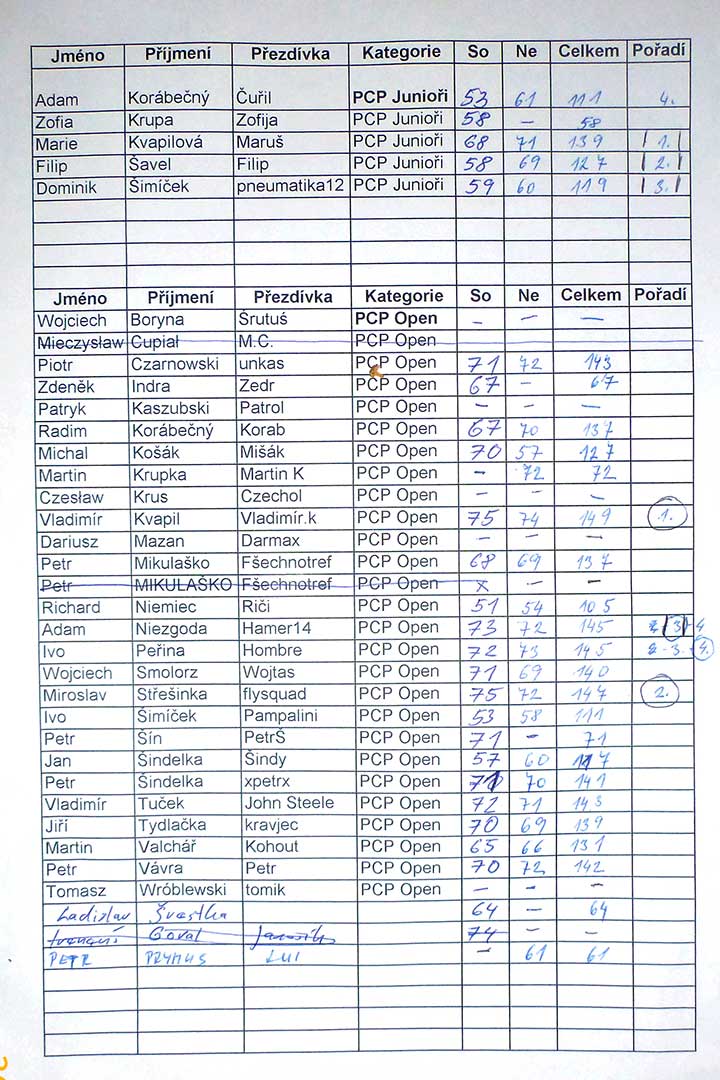 Jméno Příjmení Přezdívka Kategorie So Ne Celkem Pořadí
Adam Korábečný Čuřil PCP Junioři 53 61 111 4.
Zofia Krupa Zofija PCP Junioři 58 – 58
Marie Kvapilová Maruš PCP Junioři 68 71 139 1.
Filip Šavel Filip PCP Junioři 58 69 127 2.
Dominik Šimíček pneumatika12 PCP Junioři 59 60 119 3.
Jméno Příjmení Přezdívka Kategorie So Ne Celkem Pořadí
Wojciech Boryna Śrutuś PCP Open – – –
Mieczysław Cupiał M.C. PCP Open
Piotr Czarnowski unkas PCP Open 71 72 143
Zdeněk Indra Zedr PCP Open 67 – 67
Patryk Kaszubski Patrol PCP Open – – –
Radim Korábečný Korab PCP Open 67 70 137
Michal Košák Mišák PCP Open 70 57 127
Martin Krupka Martin K PCP Open – 72 72
Czesław Krus Czechol PCP Open – – –
Vladimír Kvapil Vladimír.k PCP Open 75 74 149 1.
Dariusz Mazan Darmax PCP Open – – –
Petr Mikulaško Fšechnotref PCP Open 68 69 137
Petr MIKULAŠKO Fšechnotref PCP Open x – –
Richard Niemiec Riči PCP Open 51 54 105
Adam Niezgoda Hamer14 PCP Open 73 72 145 3 4
Ivo Peřina Hombre PCP Open 72 73 145 3. 4.
Wojciech Smolorz Wojtas PCP Open 71 69 140
Miroslav Střešinka flysquad PCP Open 75 72 147 2.
Ivo Šimíček Pampalini PCP Open 53 58 111
Petr Šín PetrŠ PCP Open 71 – 71
Jan Šindelka Šindy PCP Open 57 60 117
Petr Šindelka xpetrx PCP Open 71 70 141
Vladimír Tuček John Steele PCP Open 72 71 143
Jiří Tydlačka kravjec PCP Open 70 69 139
Martin Valchář Kohout PCP Open 65 66 131
Petr Vávra Petr PCP Open 70 72 142
Tomasz Wróblewski tomik PCP Open – – –
Ladislav Švestka 64 – 64
Goral 74 – –
PETR PRYMUS LUI – 61 61